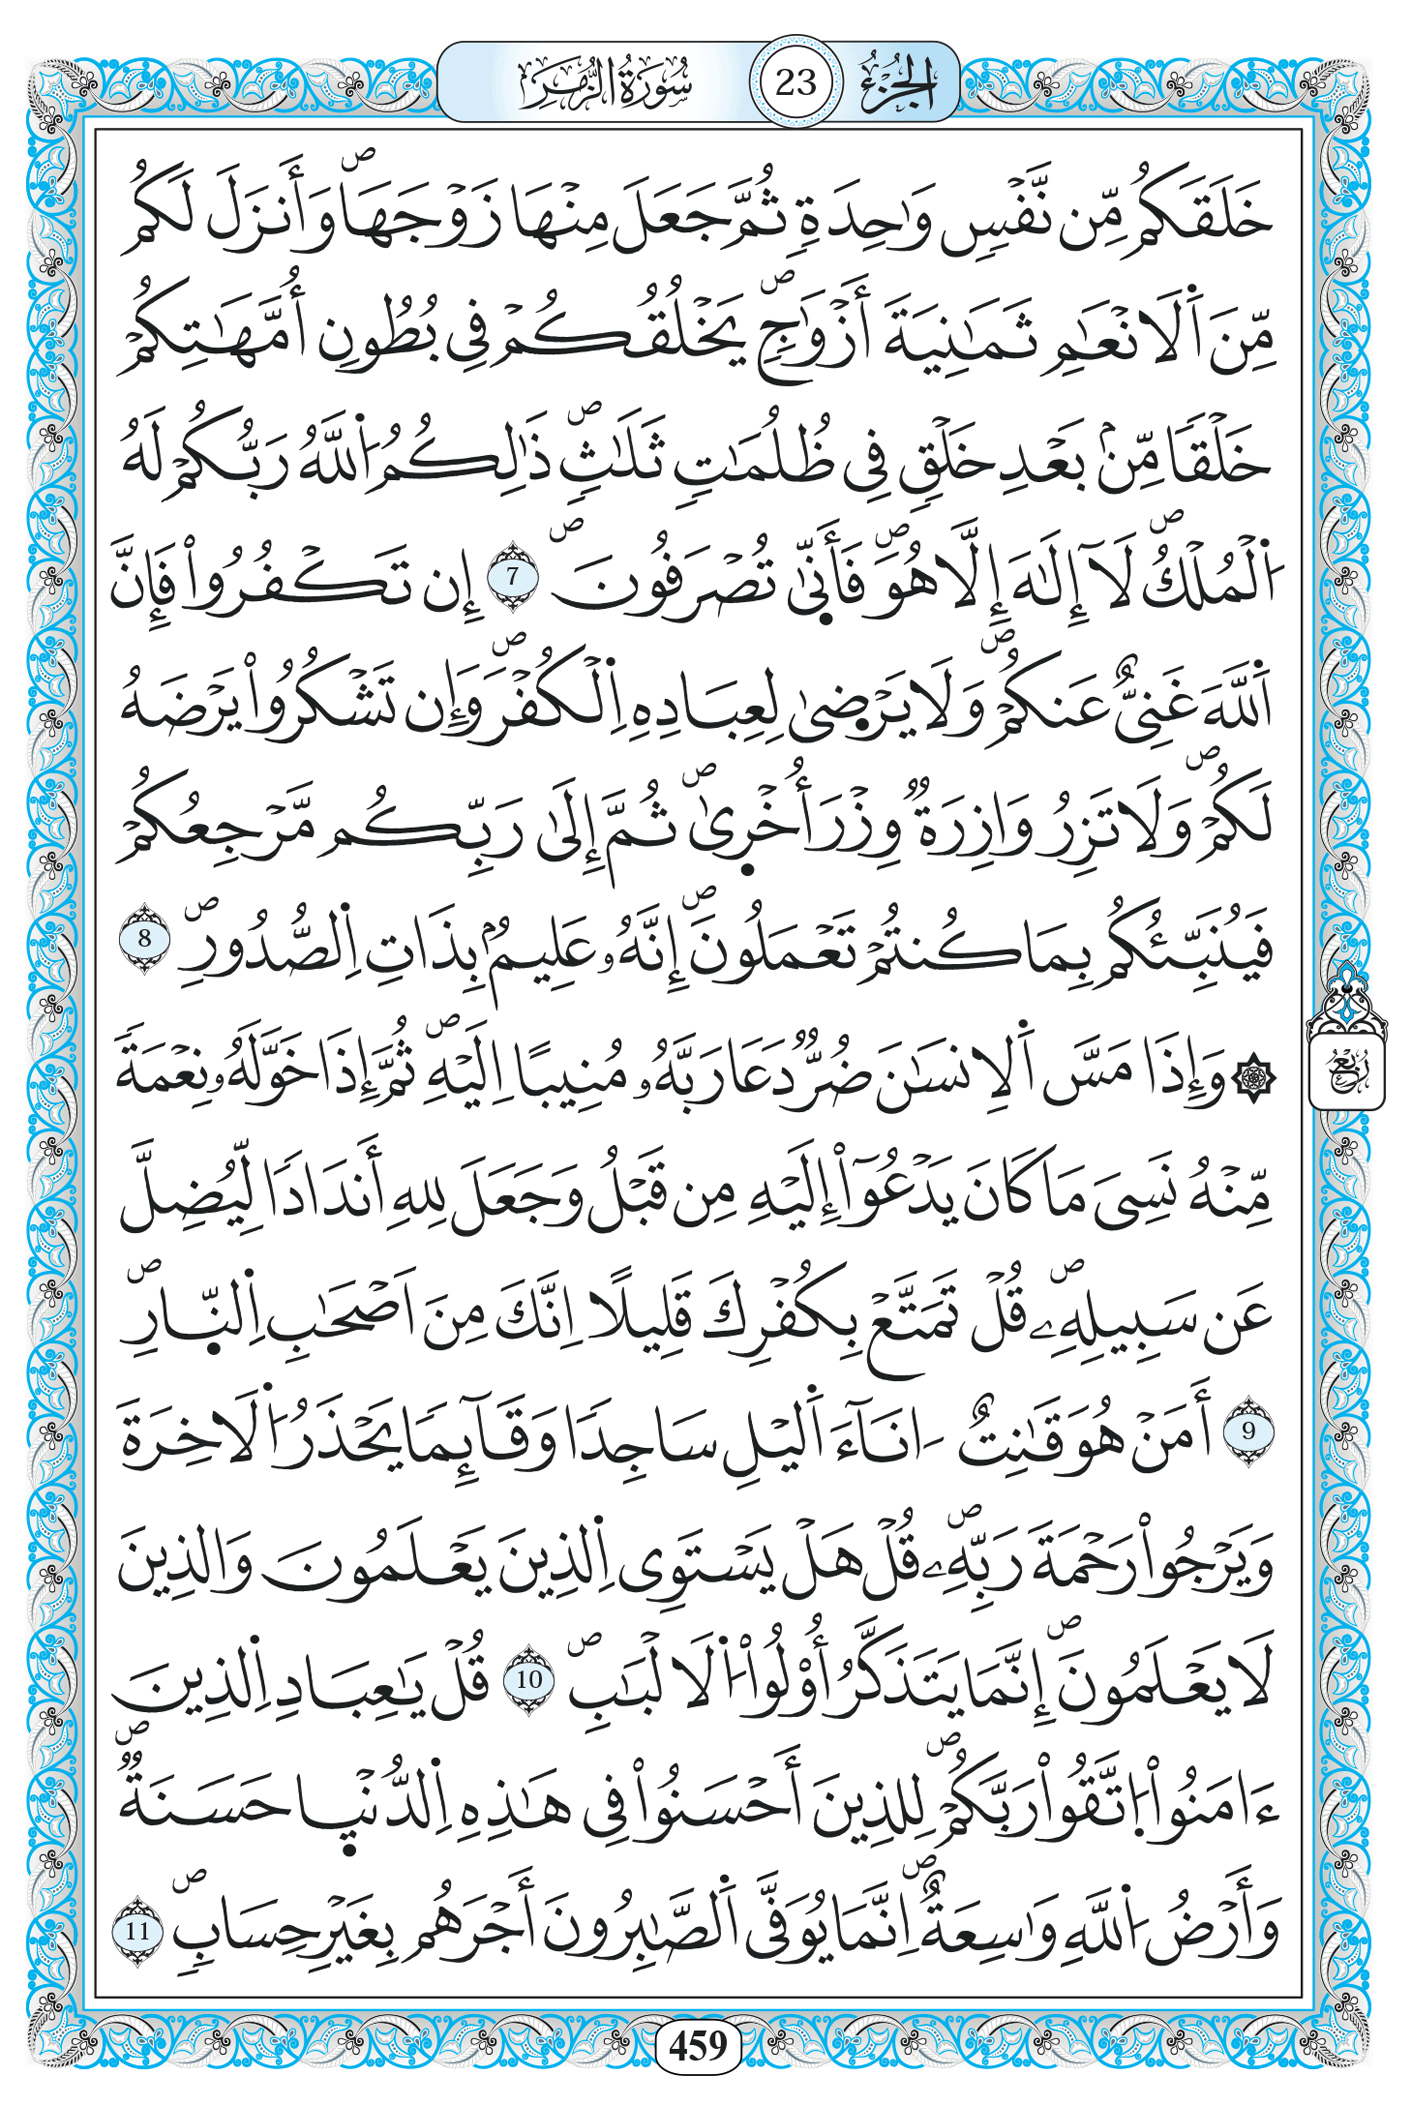 سُورَةُ الزُّمَرِ 23 الجُزْءُ
خَلَقَكُم مِّن نَّفْسٖ وَٰحِدَةٖ ثُمَّ جَعَلَ مِنْهَا زَوْجَهَاۖ وَأَنزَلَ لَكُم
مِّنَ اَ۬لَانْعَٰمِ ثَمَٰنِيَةَ أَزْوَٰجٖۖ يَخْلُقُكُمْ فِي بُطُونِ أُمَّهَٰتِكُمْ
خَلْقاٗ مِّنۢ بَعْدِ خَلْقٖ فِي ظُلُمَٰتٖ ثَلَٰثٖۖ ذَٰلِكُمُ اُ۬للَّهُ رَبُّكُمْ لَهُ
اُ۬لْمُلْكُۖ لَآ إِلَٰهَ إِلَّا هُوَۖ فَأَنّ۪ىٰ تُصْرَفُونَۖ 7 إِن تَكْفُرُواْ فَإِنَّ
اَ۬للَّهَ غَنِيٌّ عَنكُمْۖ وَلَا يَرْض۪ىٰ لِعِبَادِهِ اِ۬لْكُفْرَۖ وَإِن تَشْكُرُواْ يَرْضَهُ
لَكُمْۖ وَلَا تَزِرُ وَازِرَةٞ وِزْرَ أُخْر۪ىٰۖ ثُمَّ إِلَىٰ رَبِّكُم مَّرْجِعُكُمْ
فَيُنَبِّئُكُم بِمَا كُنتُمْ تَعْمَلُونَۖ إِنَّهُۥ عَلِيمُۢ بِذَاتِ اِ۬لصُّدُورِۖ 8
۞ وَإِذَا مَسَّ اَ۬لِانسَٰنَ ضُرّٞ دَعَا رَبَّهُۥ مُنِيباً اِلَيْهِۖ ثُمَّ إِذَا خَوَّلَهُۥ نِعْمَةٗ
رُبُعُ
مِّنْهُ نَسِيَ مَا كَانَ يَدْعُوٓاْ إِلَيْهِ مِن قَبْلُ وَجَعَلَ لِلهِ أَندَاداٗ لِّيُضِلَّ
عَن سَبِيلِهِۦۖ قُلْ تَمَتَّعْ بِكُفْرِكَ قَلِيلاً اِنَّكَ مِنَ اَصْحَٰبِ اِ۬لنّ۪ارِۖ
9 أَمَنْ هُوَ قَٰنِتٌ اٰنَآءَ اَ۬ليْلِ سَاجِداٗ وَقَآئِماٗ يَحْذَرُ اُ۬لَاخِرَةَ
وَيَرْجُواْ رَحْمَةَ رَبِّهِۦۖ قُلْ هَلْ يَسْتَوِي اِ۬لذِينَ يَعْلَمُونَ وَالذِينَ
لَا يَعْلَمُونَۖ إِنَّمَا يَتَذَكَّرُ أُوْلُواْ اُ۬لَالْبَٰبِۖ 10 قُلْ يَٰعِبَادِ اِ۬لذِينَ
ءَامَنُواْ اُ۪تَّقُواْ رَبَّكُمْۖ لِلذِينَ أَحْسَنُواْ فِي هَٰذِهِ اِ۬لدُّنْي۪ا حَسَنَةٞۖ
وَأَرْضُ اُ۬للَّهِ وَٰسِعَةٌۖ اِنَّمَا يُوَفَّى اَ۬لصَّٰبِرُونَ أَجْرَهُم بِغَيْرِ حِسَابٖۖ 11
459